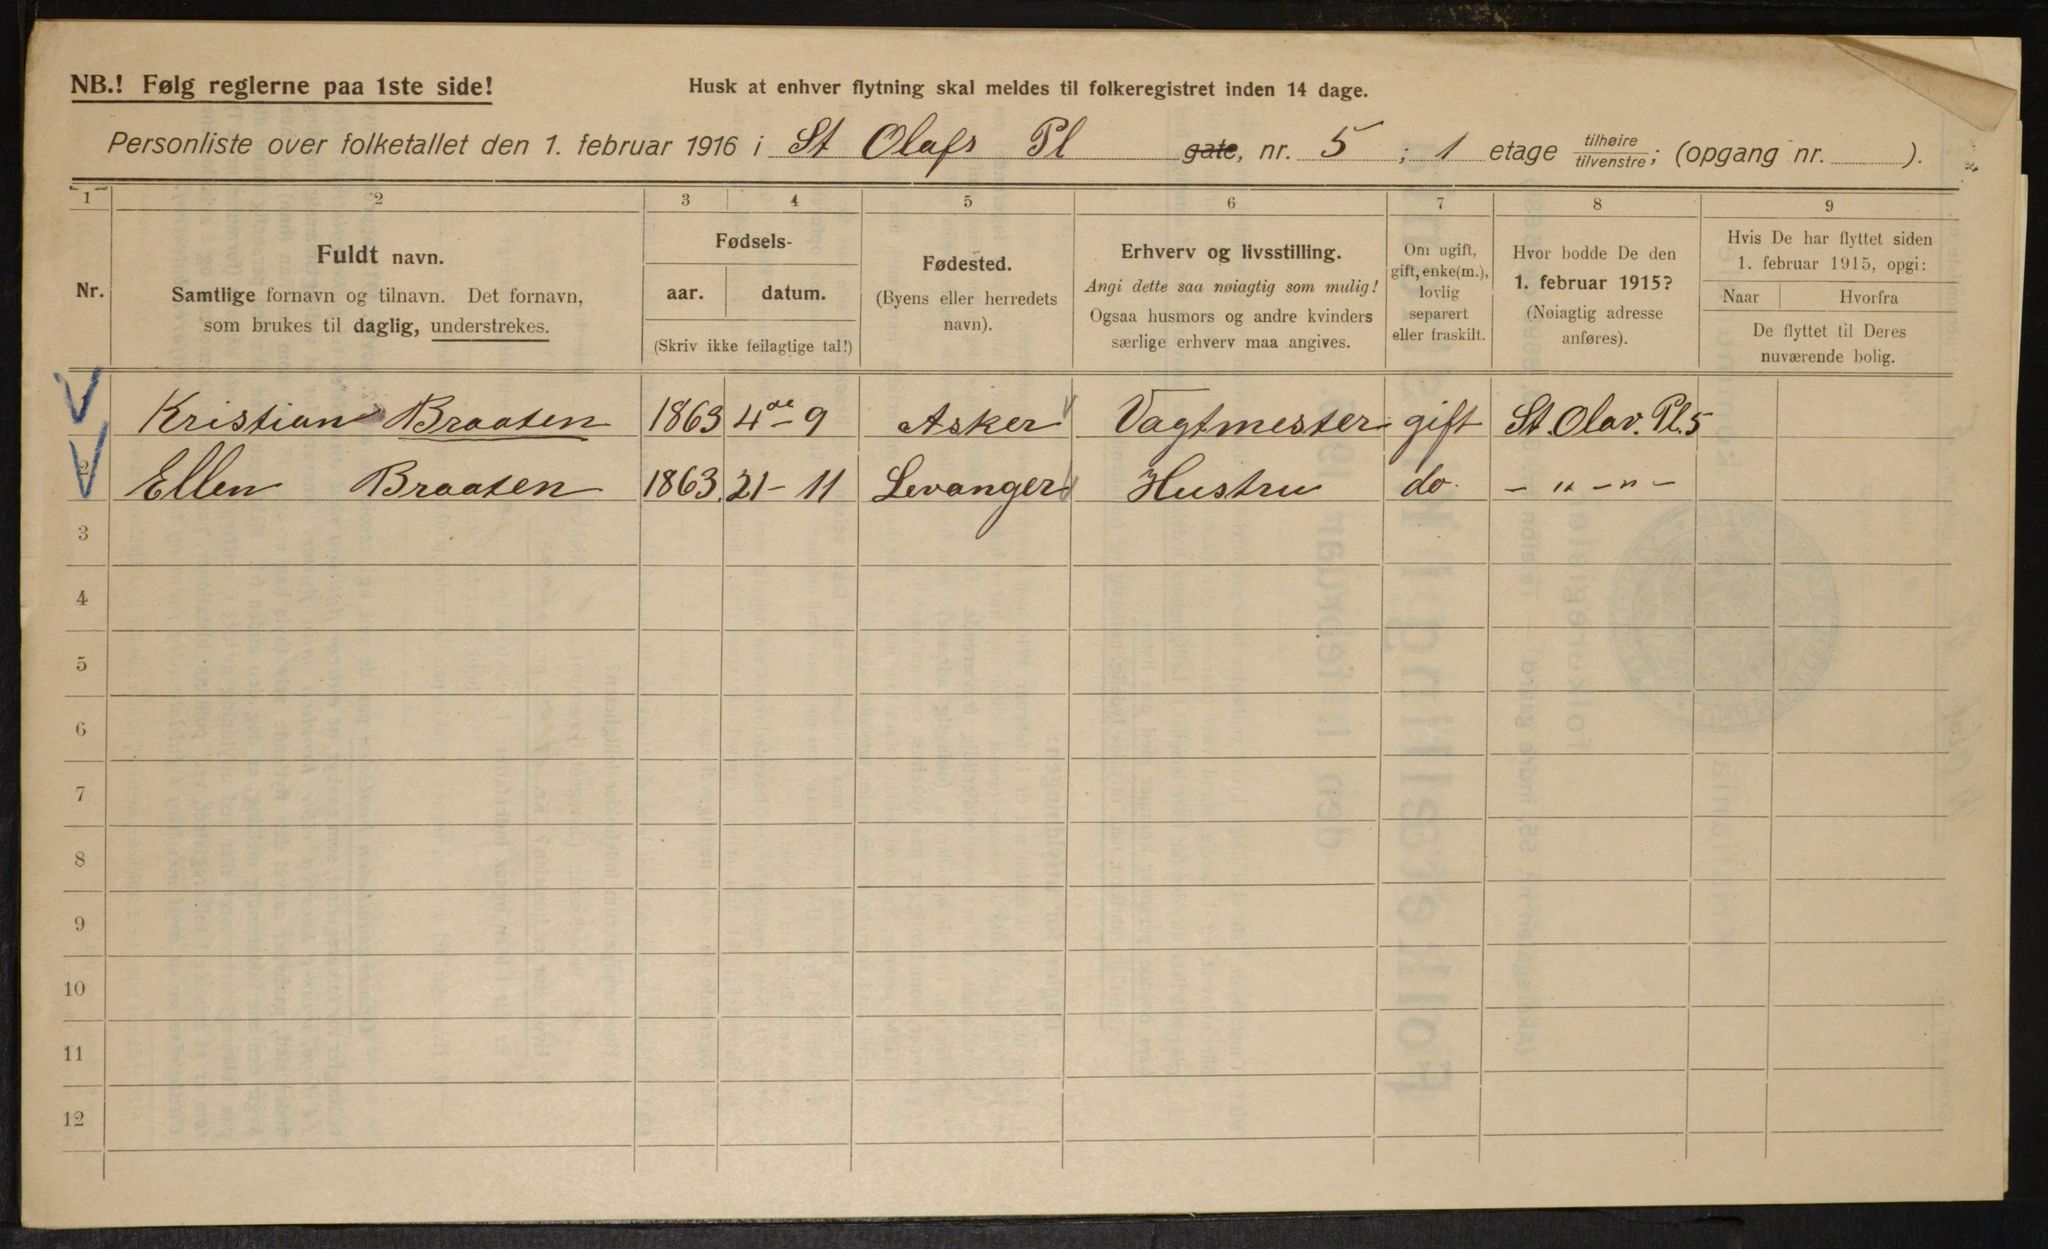 NB.! Følg reglerne paa 1ste side!
Husk at enhver flytning skal meldes til folkeregistret inden 14 dage.
Personliste over folketallet den 1. februar 1916 i St Olafs Pl gate, nr. 5 ; 1 etage tilhøire tilvenstre; (opgang nr. ).
1 2 3 4 5 6 7 8 9
Nr.
Fuldt navn.
Samtlige fornavn og tilnavn. Det fornavn,
som brukes til daglig, understrekes.
Fødsels-
aar. datum.
(Skriv ikke feilagtige tal!)
Fødested.
(Byens eller herredets
navn).
Erhverv og livsstilling.
Angi dette saa nøiagtig som mulig!
Ogsaa husmors og andre kvinders
særlige erhverv maa angives.
Om ugift,
gift, enke(m.),
lovlig
separert
eller fraskilt.
Hvor bodde De den
1. februar 1915?
(Nøiagtig adresse
anføres).
Hvis De har flyttet siden
1. februar 1915, opgi:
Naar Hvorfra
De flyttet til Deres
nuværende bolig.
Kristian Braaten 1863 4de - 9 Asker Vagtmester gift St. Olav. Pl. 5
2 Ellen Braaten 1863. 21 - 11 Levanger Hustru do. - " - " -
3
4
5
6
7
8
9
10
11
12